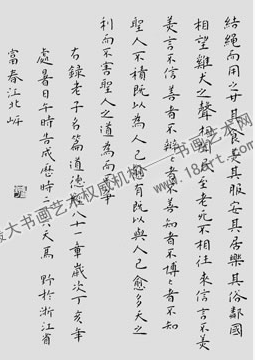 結繩而用之甘其食美其服安其居樂其俗鄰國
相望雞犬之聲相聞民至老死不相往來信言不美
美言不信善者不辯辯者不善知者不博博者不知
聖人不積既以為人己愈有既以與人己愈多天之
利而不害聖人之道為而不爭
右錄老子名篇道德經八十一章歲次丁亥年
處暑日午時告成歷時六天馬 野於浙江省
富春江北岸